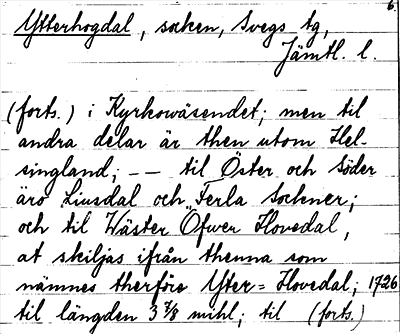 6.
Ytterhogdal, socken, Svegs tg,
Jämtl. l.
(forts.) i Kyrkowäsendet; men til
andra delar är then utom Hel-
singland; -- til Öster och Söder
äro Liusdal och Ferla Sockner;
och til Wäster Öfwer Hovedal,
at skiljas ifrån thenna som
nämnes therföre Yter=Hovedal; 1726
til längden 3 7/8 mihl; til (forts.)